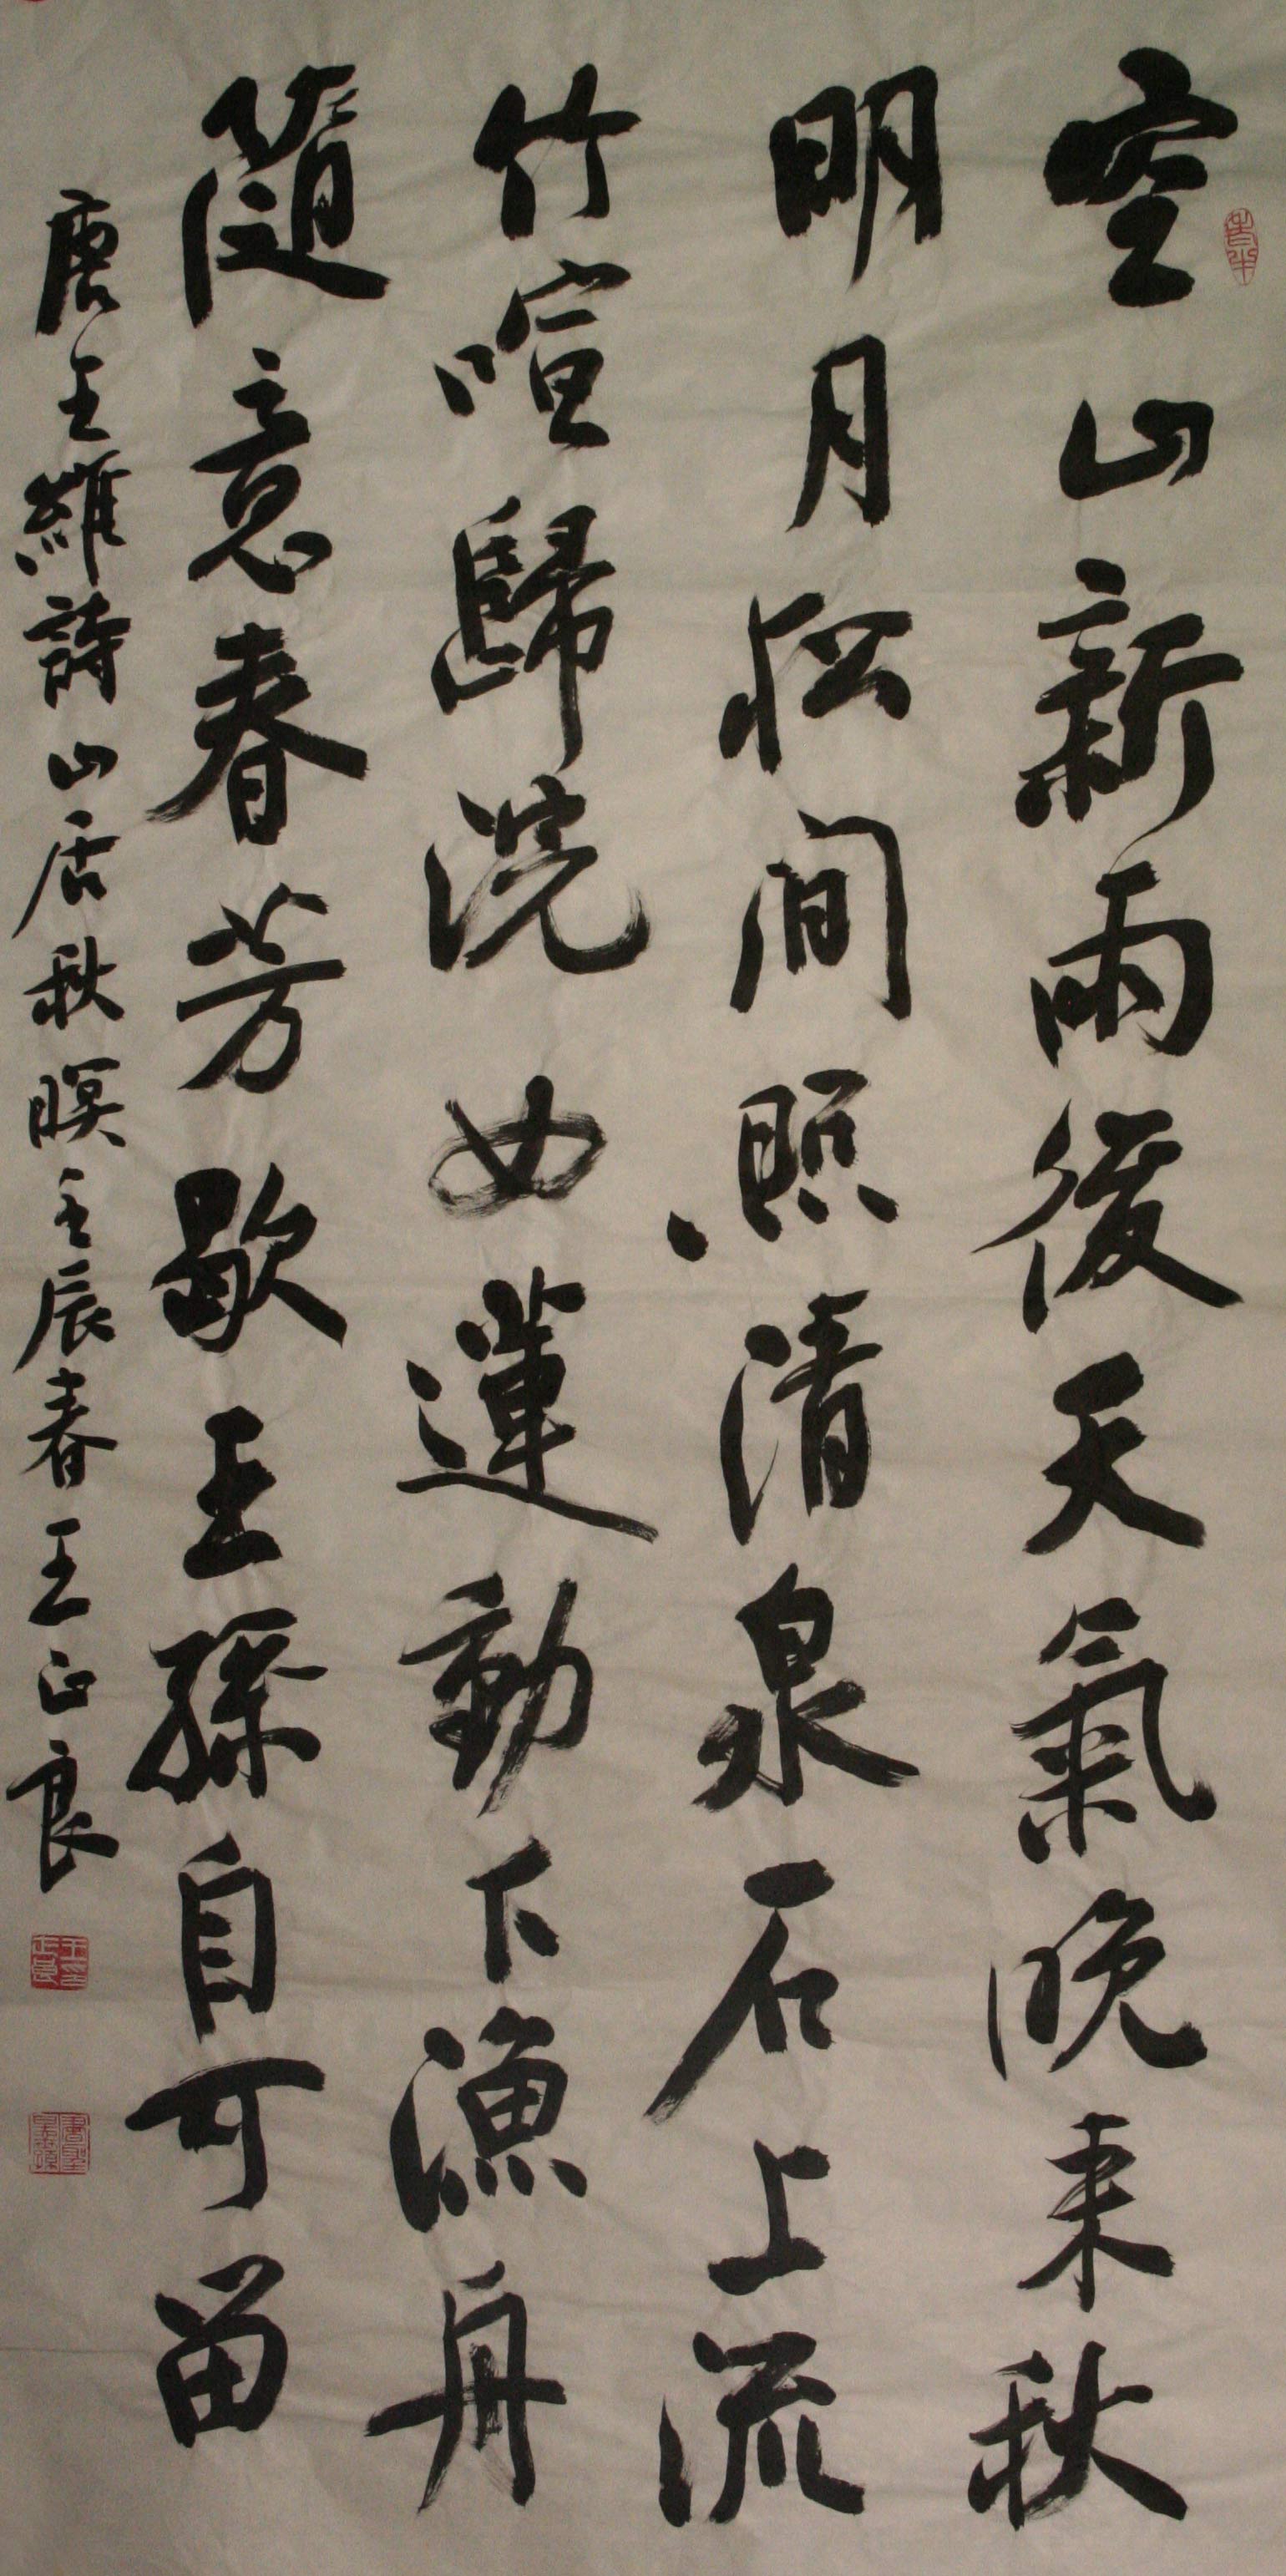 空山新雨後天氣晚来秋
明月松間照清泉石上流
竹喧歸浣女蓮動下漁舟
隨意春芳歇王孫自可留
唐王維詩山居秋暝壬辰春王正良